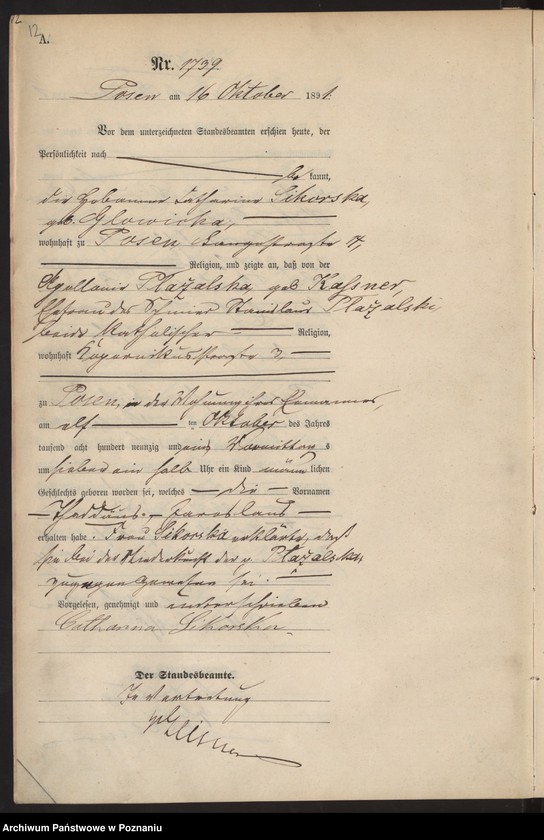 12
12
A.
Nr. 1739.
Posen am 16 Oktober 1891.
Vor dem unterzeichneten Standesbeamten erschien heute, der
Persönlichkeit nach
be kannt,
die Hebamme Catharina Sikorska,
geb. Glowicka,
wohnhaft zu Posen, Langestraße 4,
Religion, und zeigte an, daß von der
Apollonia Płażalska, geb. Kassner,
Ehefrau des Stanislaus Płażalski,
beide katholischer Religion,
wohnhaft Kopernikusstraße 3,
zu Posen, in der Wohnung ihres Ehemannes,
am elf ten Oktober des Jahres
tausend acht hundert neunzig und eins Vormittags
um sieben ein halb Uhr ein Kind männ lichen
Geschlechts geboren worden sei, welches die Vornamen
Thaddäus
erhalten habe. Frau Sikorska erklärte, daß
sie bei der Niederkunft der p. Płażalska
zugegen gewesen sei.
Vorgelesen, genehmigt und unterschrieben
Catharina Sikorska
Der Standesbeamte.
In Vertretung
Archiwum Państwowe w Poznaniu